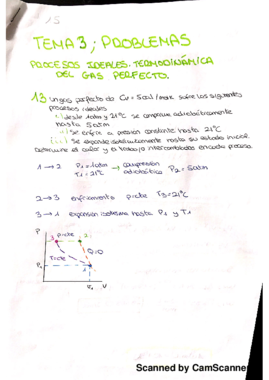 15
TEMA 3; PROBLEMAS
PROCESOS IDEALES. TERMODINÁMICA
DEL GAS PERFECTO.
13 Un gas perfecto de Cv = 5cal/mol·K sufre los siguientes
procesos ideales
i) desde 1atm y 21ºC se comprime adiabáticamente
hasta 5atm
ii) Se enfría a presión constante hasta 21ºC
iii) Se expande isotérmicamente hasta su estado inicial
Determine el calor y el trabajo intercambiados en cada proceso.
1 → 2 P1 = 1atm → compresión
T1 = 21ºC adiabática P2 = 5atm
2 → 3 enfriamiento p=cte T3 = 21ºC
3 → 1 expansión isoterma hasta P1 y T1
P
3 p=cte 2
T=cte Q=0
P1 1
V1 V
Scanned by CamScanner